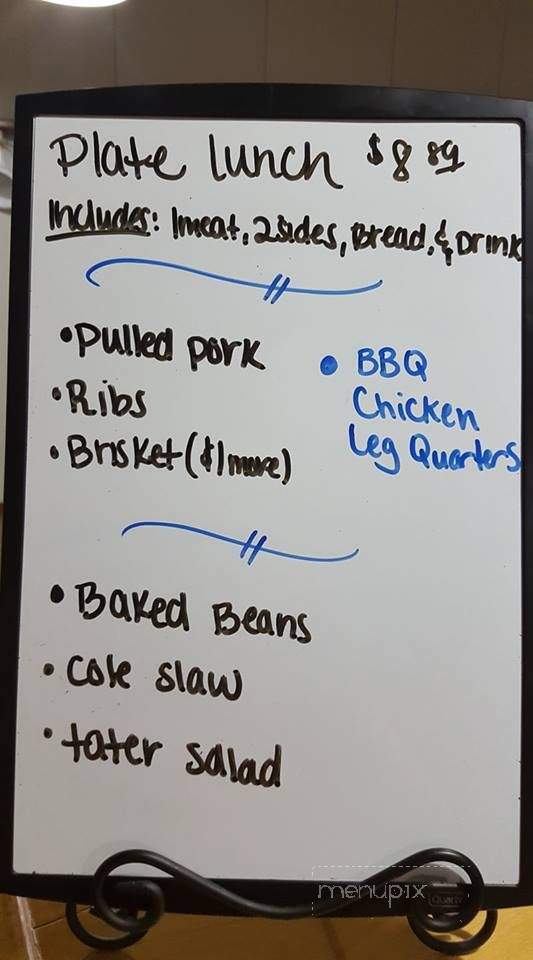 Plate lunch $8 89
Includes: 1 meat, 2 sides, Bread, & Drink
• Pulled pork
• Ribs
• Brisket ($1 more)
• BBQ
Chicken
Leg Quarters
• Baked Beans
• Cole slaw
• tater salad
menupix
Quartet